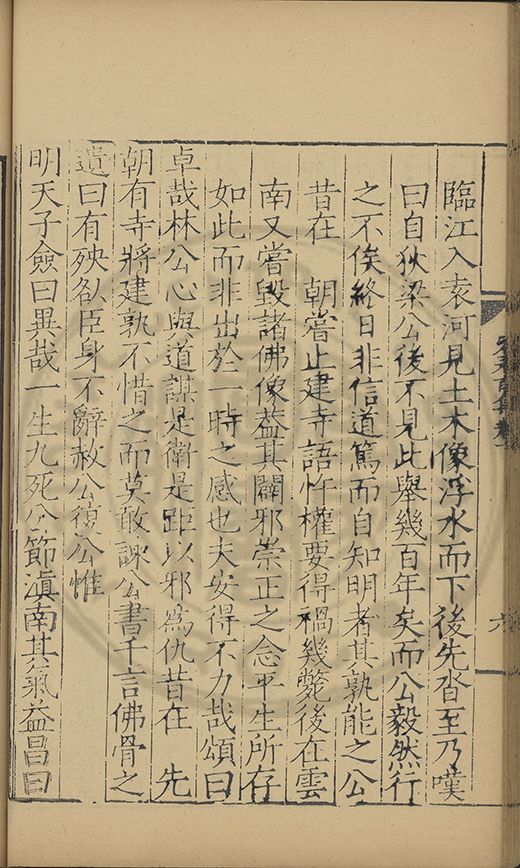 臨江入袁河見土木像浮水而下後先沓至乃嘆
曰自狄梁公後不見此舉幾百年矣而公毅然行
之不俟終日非信道篤而自知明者其孰能之公
昔在　朝嘗止建寺語忤權要得禍幾斃後在雲
南又嘗毀諸佛像蓋其闢邪崇正之念平生所存
如此而非出於一時之感也夫安得不力哉頌曰
卓哉林公心與道謀是衛是距以邪為仇昔在　先
朝有寺將建孰不惜之而莫敢諫公書千言佛骨之
遺曰有殃欲臣身不辭赦公復公惟
明天子僉曰異哉一生九死分節滇南其氣益昌曰
六